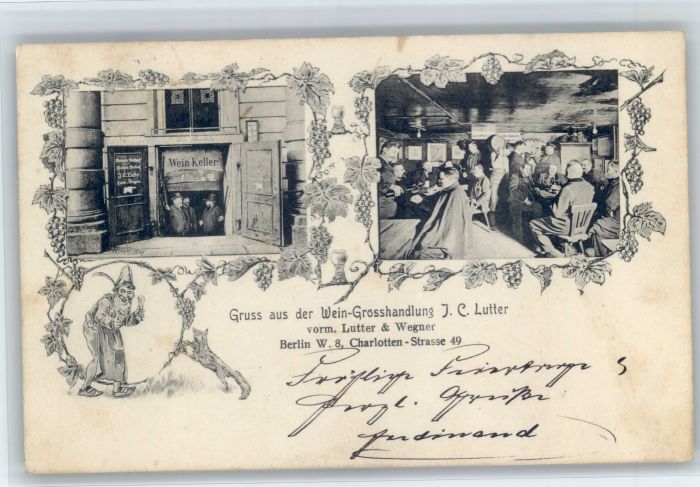 Wein Keller.
J. C. Lutter
Gruss aus der Wein-Grosshandlung J. C. Lutter
vorm. Lutter & Wegner
Berlin W. 8, Charlotten-Strasse 49
Fröhliche Feiertage
Herzl. Grüße
Ferdinand